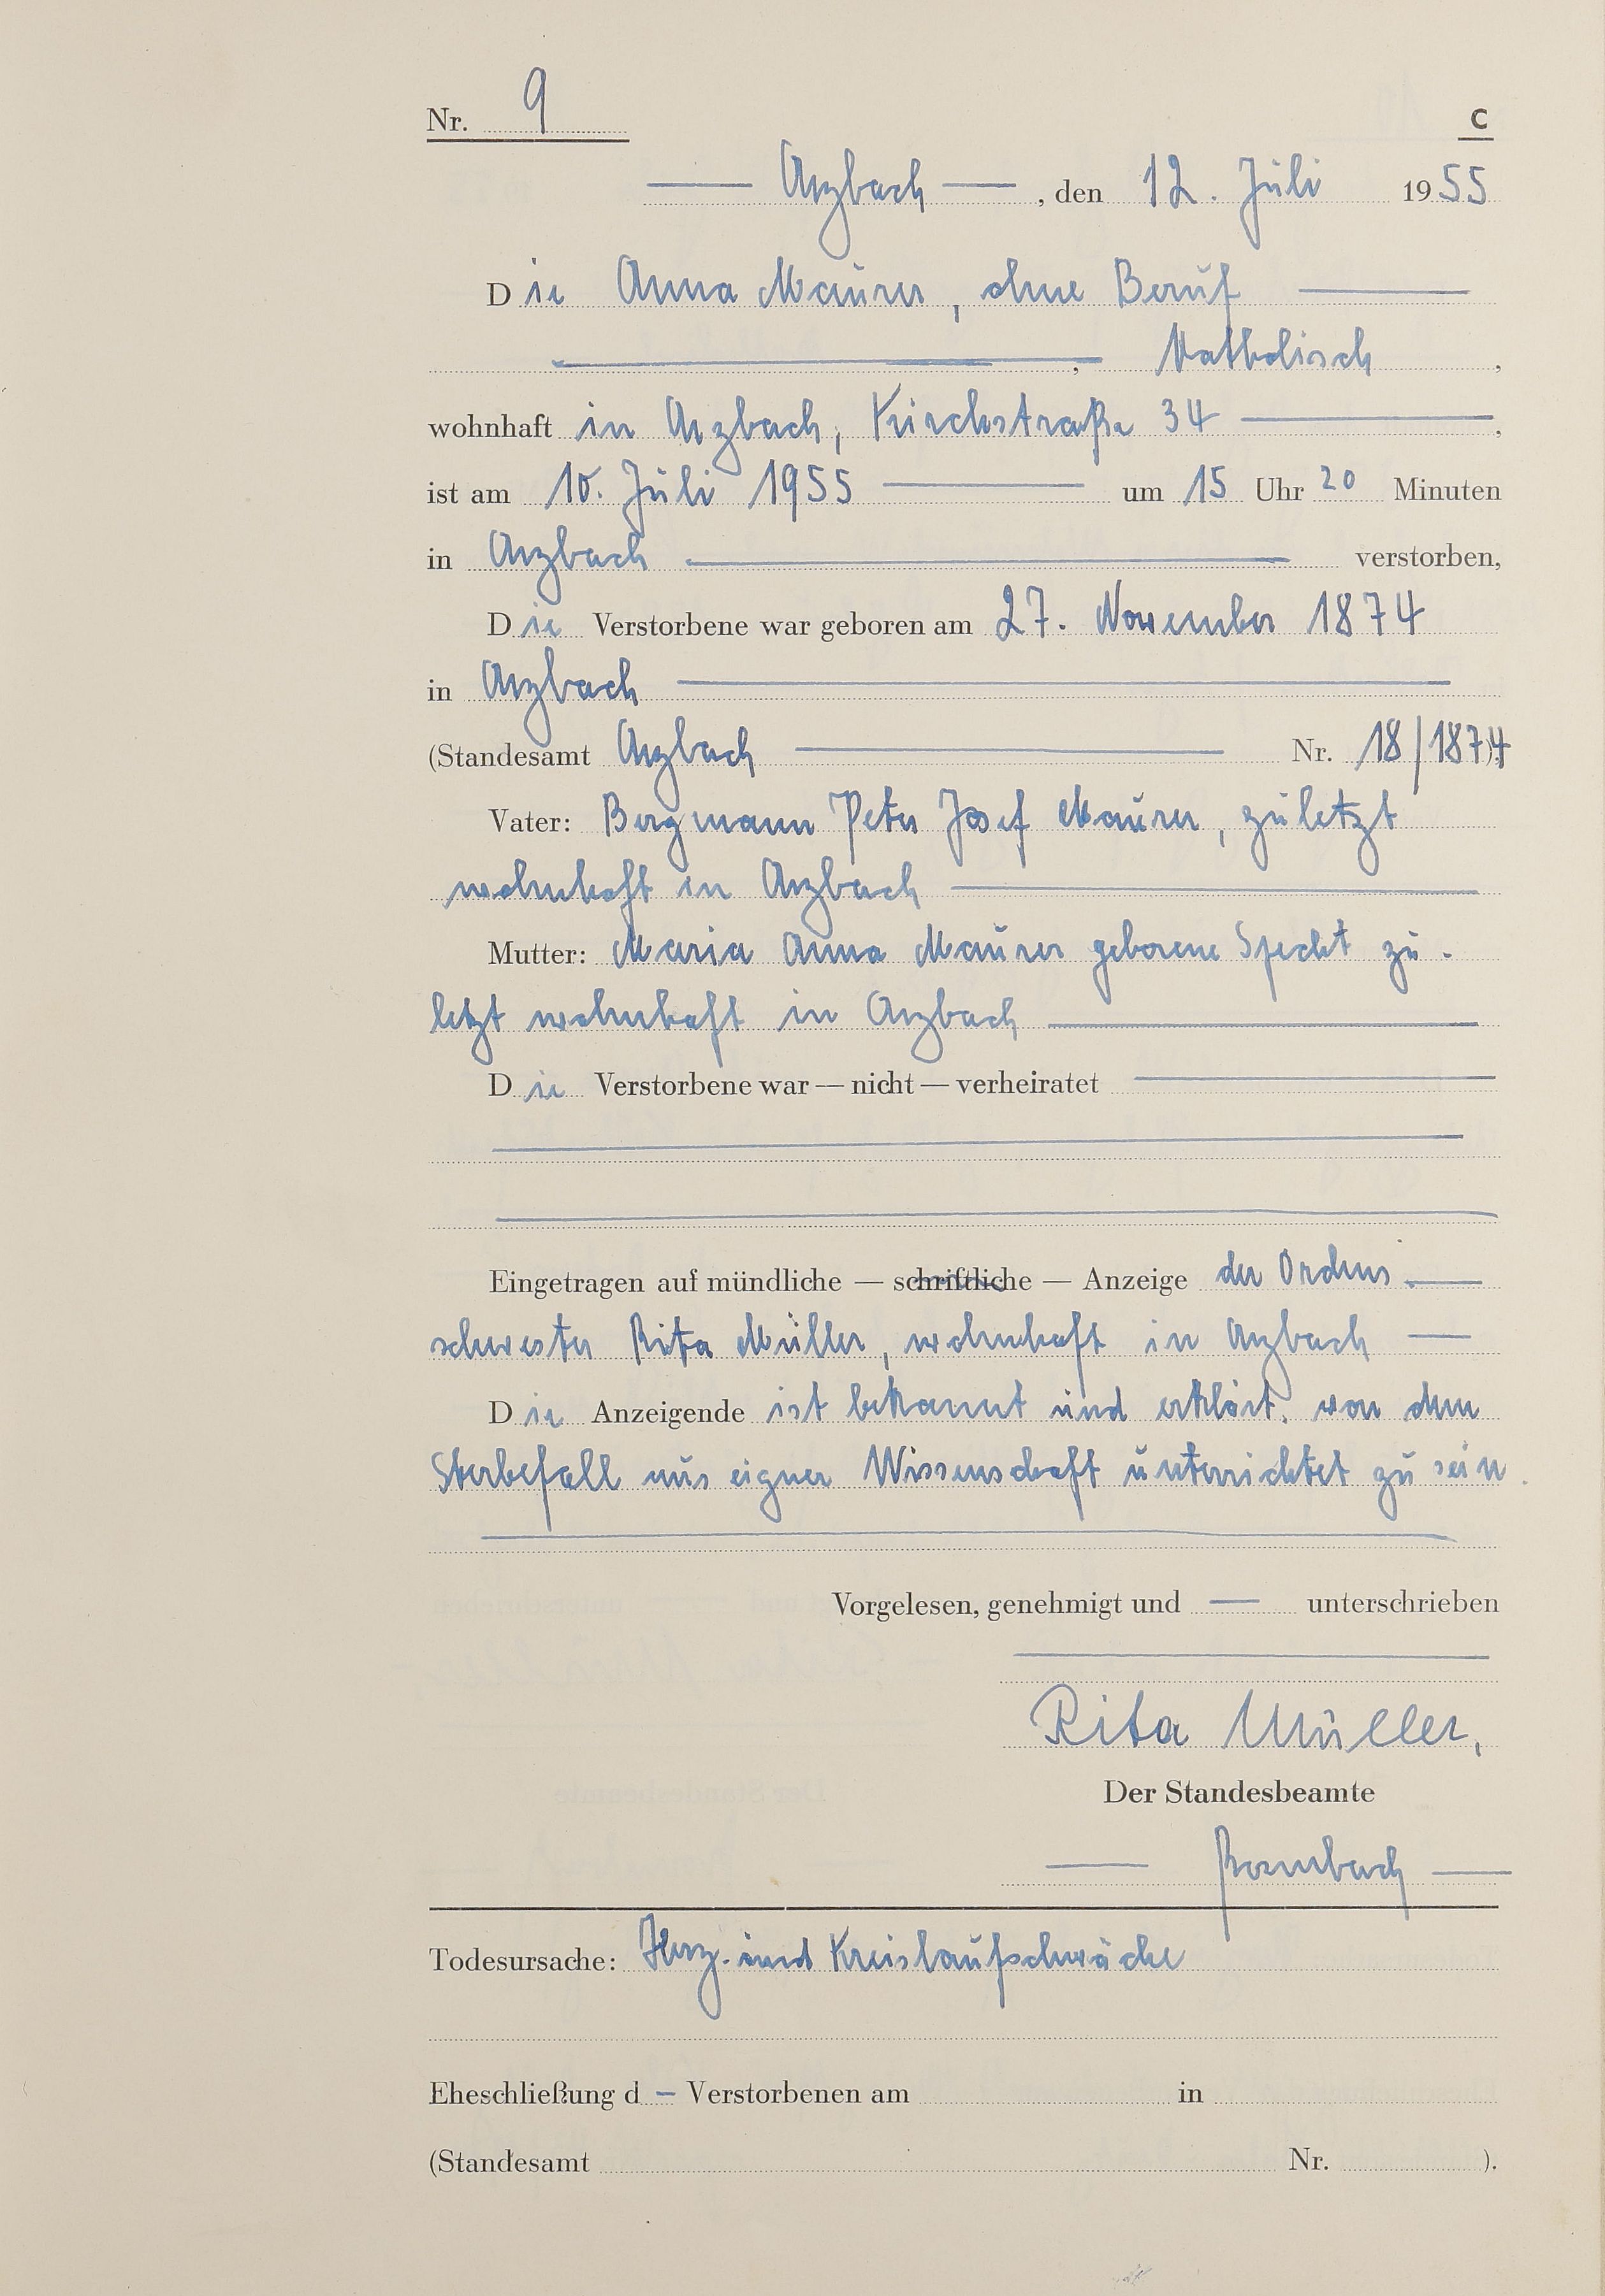 Nr. 9 C
Arzbach , den 12. Juli 1955
Die Anna Maurer, ohne Beruf
, Katholisch,
wohnhaft in Arzbach, Kirchstraße 34,
ist am 10. Juli 1955 um 15 Uhr 20 Minuten
in Arzbach verstorben,
Die Verstorbene war geboren am 27. November 1874
in Arzbach
(Standesamt Arzbach Nr. 18/1874)
Vater: Bergmann Peter Josef Maurer, zuletzt
wohnhaft in Arzbach
Mutter: Maria Anna Maurer geborene Specht zu-
letzt wohnhaft in Arzbach
Die Verstorbene war — nicht — verheiratet
Eingetragen auf mündliche — schriftliche — Anzeige der Ordens-
schwester Rita Müller, wohnhaft in Arzbach
Die Anzeigende ist bekannt und erklärt, von dem
Sterbefall aus eigner Wissenschaft unterrichtet zu sein.
Vorgelesen, genehmigt und — unterschrieben
Rita Müller,
Der Standesbeamte
Todesursache: Herz- und Kreislaufschwäche
Eheschließung d – Verstorbenen am in
(Standesamt Nr. ).